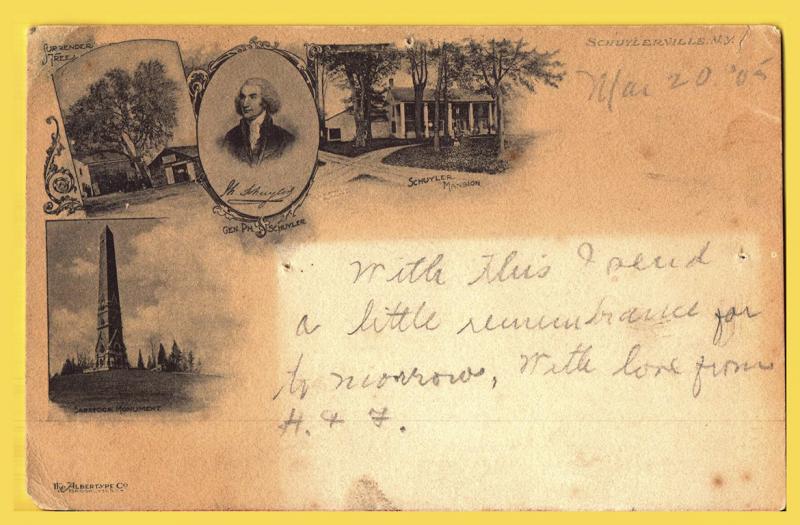 SURRENDER
TREE
SCHUYLERVILLE, N.Y.
Mar 20. '05
Ph. Schuyler
SCHUYLER
MANSION
GEN. PH. SCHUYLER
SARATOGA MONUMENT
With this I send
a little remembrance for
to morrow, With love from
H. & F.
The Albertype Co
BROOKLYN, N.Y.